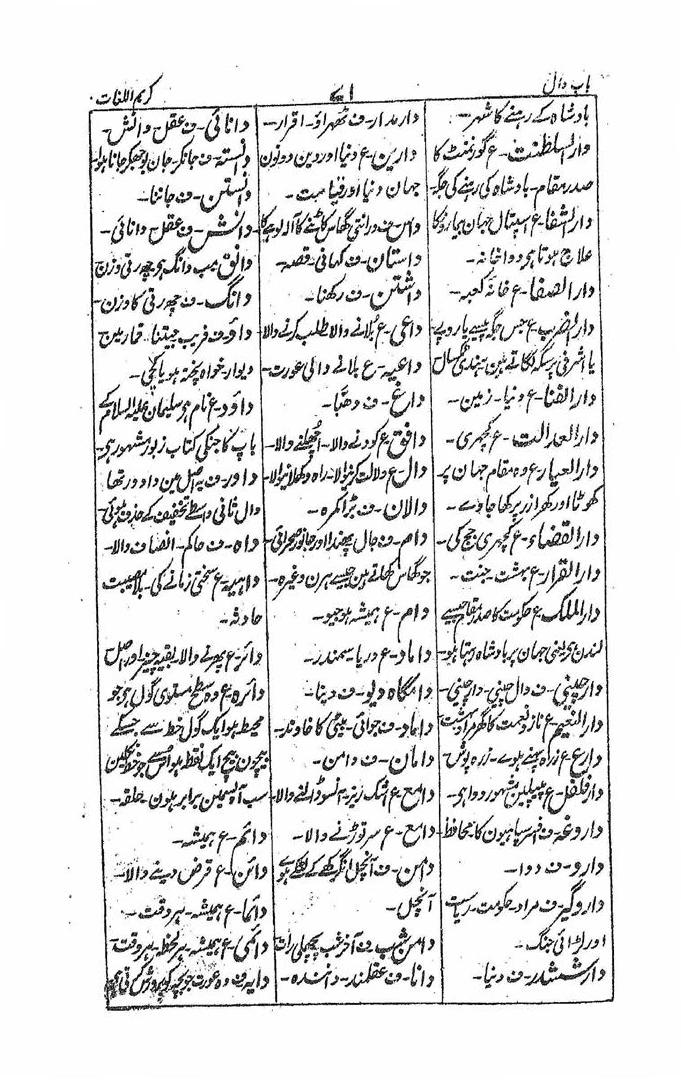 باب دال
۷۱
کریم اللغات
بادشاہ کے رہنے کا شہر۔
دارالسلطنت۔ ع گورنمنٹ کا
صدر مقام۔ بادشاہ کی رہنے کی جگہ
دارالشفا۔ ع اسپتال جہان بیمارونکا
علاج ہوتا ہو دواخانہ۔
دارالصفا۔ ع خانہ کعبہ۔
دارالضرب۔ ع جس جگہ پیسے یا روپے
یا اشرفی پر سکہ لگاتے ہین ہندی ٹکسال
دارالفنا۔ ع دنیا۔ زمین۔
دارالعدالت۔ ع کچہری۔
دارالعیار۔ ع وہ مقام جہان پر
کھوٹا اور کھرا زر پرکھا جاوے۔
دارالقضاء۔ ع کچہری جج کی۔
دارالقرار۔ ع بہشت۔ جنت۔
دارالملک۔ ع حکومت کا صدر مقام جیسے
لندن ہی یعنی جہان پر بادشاہ رہتا ہو۔
دارچینی۔ ف دال چینی۔ دارچینی۔
دارالنعیم۔ ع ناز و نعمت کا گھر مراد بہشت
دارع۔ ع زرہ پہنے ہوے۔ زرہ پوش
دارفلفل۔ ع پیپلین مشہور دوا ہی۔
داروغہ۔ ف افسر سپاہیون کا محافظ
دارو۔ ف دوا۔
داروگیر۔ ف مراد۔ حکومت۔ ریاست
اور لڑائی جنگ۔
دارششدر۔ ف دنیا۔
دارمدار۔ ف ٹھہراؤ۔ اقرار۔
دارین۔ ع دنیا اور دین دونون
جہان دنیا اور قیامت۔
داس۔ ف درانتی گھاس کاٹنے کا آلہ لوہیکا
داستان۔ ف کہانی۔ قصہ۔
داشتن۔ ف رکھنا۔
داعی۔ ع بُلانے والا طلب کرنے والا
داعیہ۔ ع بلانے والی عورت۔
داغ۔ ف دھبّا۔
دافق۔ ع کودنے والا۔ اُچھلنے والا۔
دال۔ ع دلالت کرنیوالا۔ راہ دکھلانیوالا۔
دالان۔ ف بڑا کمرہ۔
دام۔ ف جال پھندا اور جانور صحرائی
جو گھاس کھاتے ہین جیسے ہرن وغیرہ۔
دام۔ ع ہمیشہ ہوجیو۔
داماد۔ ع دریا۔ سمندر۔
دامگاہ دیو۔ ف دنیا۔
داماد۔ ف جوائی۔ بیٹی کا خاوند۔
دامان۔ ف دامن۔
دامع۔ ع اشک ریز۔ آنسو ڈالنے والا۔
دامغ۔ ع سر توڑنے والا۔
دامن۔ ف آنچل انگرکھے کے لٹکے ہوے
آنچل۔
دامن شب۔ ف آخر شب پچھلی رات
دانا۔ ف عقلمند۔ دانندہ۔
دانائی۔ ف عقل دانش۔
دانستہ۔ ف جانکر۔ جان بوجھکر جانا ہوا۔
دانستن۔ ف جاننا۔
دانش۔ ف عقل۔ دانائی۔
دانق۔ معرب دانگ ہی چھ رتی وزن
دانگ۔ ف چھ رتی کا وزن۔
داؤ۔ ف فریب جیتنا۔ قمار مین
دیوار۔ خواہ پختہ ہو یا کچی۔
داؤد۔ ع نام ہی سلیمان علیہ السلام کے
باپ کا جنکی کتاب زبور مشہور ہی۔
داور۔ ف یہ اصل مین داد ور تھا
دال ثانی واسطے تخفیف کے حذف ہوئی
داہ۔ ف حاکم۔ انصاف والا۔
داہیہ۔ ع سختی زمانے کی۔ بلا مصیبت
حادثہ۔
دائر۔ ع پھرنے والا۔ بقیہ چیز اور اصل
دائرہ۔ ع وہ سطح مستوی گول ہی جو
محیط ہو ایک گول خط سے جسکے
بیچون بیچ ایک نقطہ ہو اُس سے جو خط نکلین
سب آپسمین برابر ہون۔ حلقہ۔
دائم۔ ع ہمیشہ۔
دائن۔ ع قرض دینے والا۔
دائما۔ ع ہمیشہ۔ ہر وقت۔
دائمی۔ ع ہمیشہ۔ ہر لحظہ۔ ہر وقت
دایہ۔ ف وہ عورت جو بچہ کو پرورش کرتی ہی